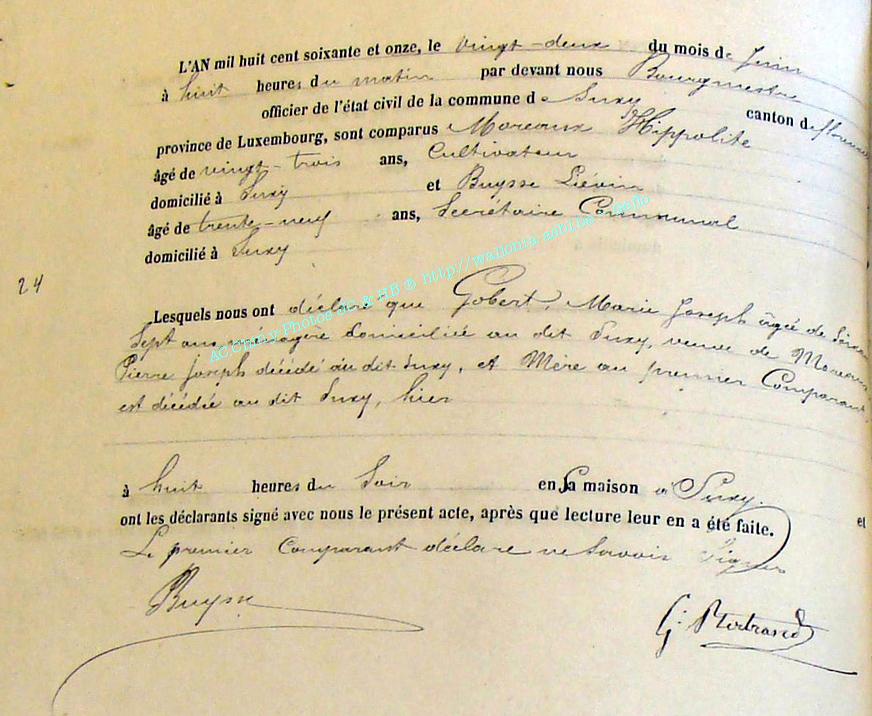 L'AN mil huit cent soixante et onze, le vingt-deux du mois de Juin
à huit heures du matin par devant nous Bourgmestre
officier de l'état civil de la commune de Suxy canton de
province de Luxembourg, sont comparus Moreaux Hippolite
âgé de vingt-trois ans, Cultivateur
domicilié à Suxy et Buysse Liévin
âgé de trente-neuf ans, Secrétaire Communal
domicilié à Suxy
24
Lesquels nous ont déclaré que Gobert, Marie Joseph âgée de
Sept ans ménagère domiciliée au dit Suxy, veuve de Moreaux
Pierre Joseph décédé au dit Suxy, et Mère au premier Comparant,
est décédée au dit Suxy, hier
à huit heures du Soir en sa maison à Suxy. et
ont les déclarants signé avec nous le présent acte, après que lecture leur en a été faite.
Le premier Comparant déclare ne Savoir Signer
Buysse
G. Bertrand